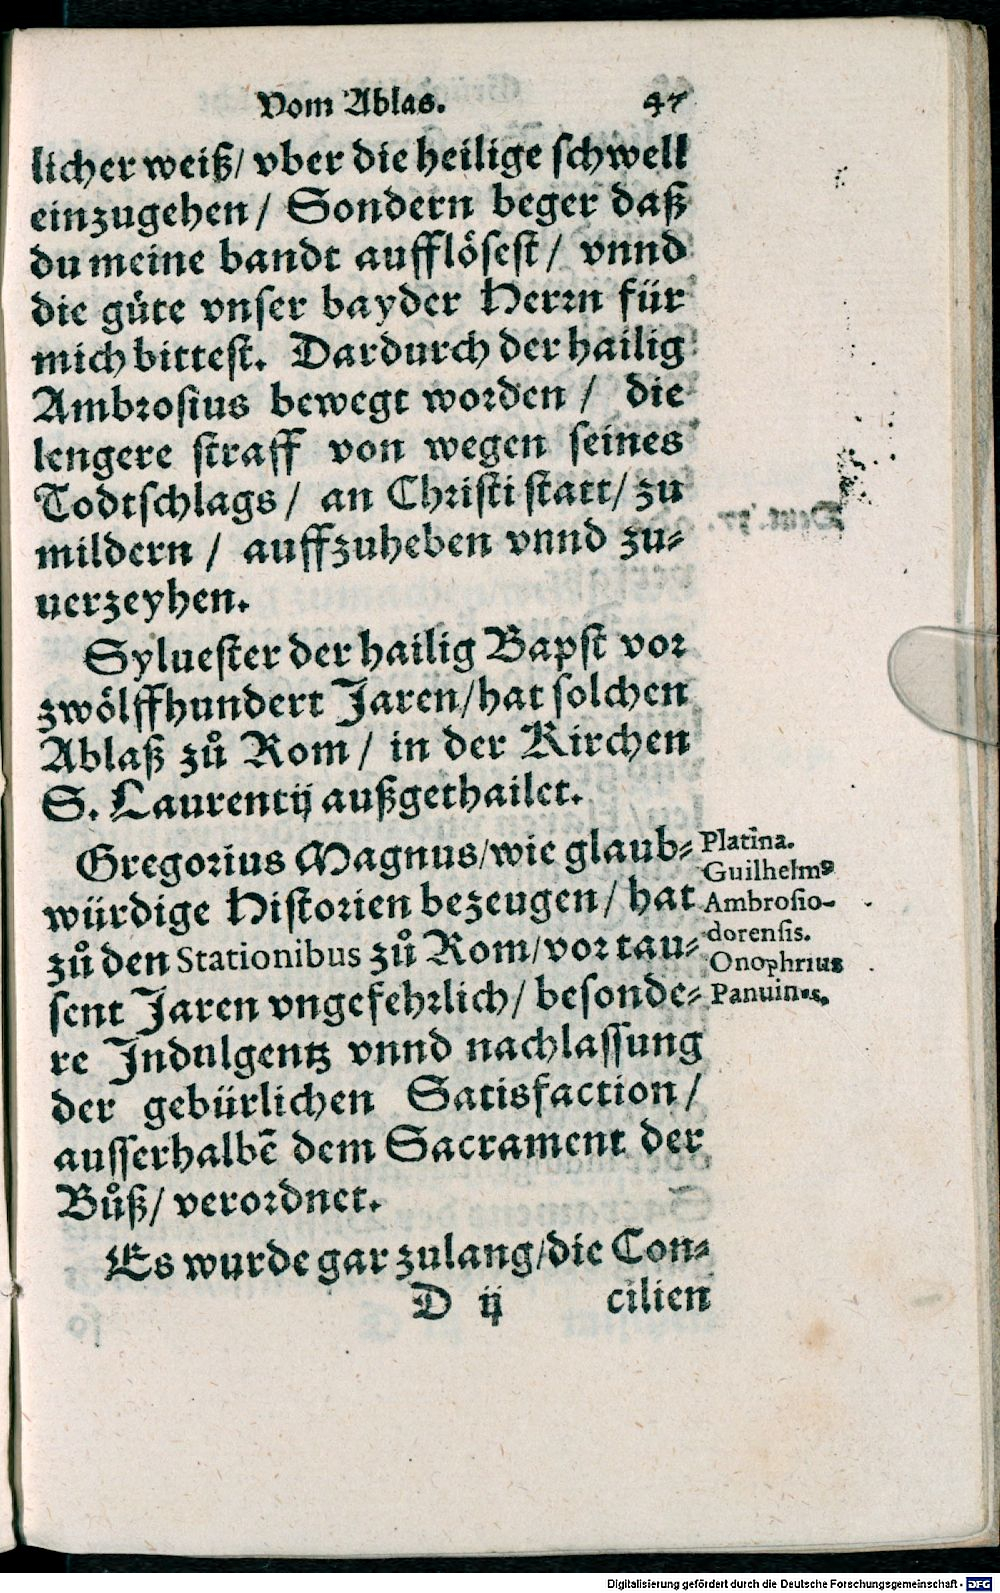 Vom Ablas. 47
licher weiß/ vber die heilige schwell
einzugehen / Sondern beger daß
du meine bandt aufflösest / vnnd
die güte vnser bayder Herrn für
mich bittest. Dardurch der hailig
Ambrosius bewegt worden / die
lengere straff von wegen seines
Todtschlags / an Christi statt / zu
mildern / auffzuheben vnnd zu-
uerzeyhen.
Syluester der hailig Bapst vor
zwölffhundert Jaren/hat solchen
Ablaß zů Rom / in der Kirchen
S. Laurentij außgethailet.
Gregorius Magnus/wie glaub-
würdige Historien bezeugen / hat
zů den Stationibus zů Rom/vor tau-
sent Jaren vngefehrlich/ besonde-
re Indulgentz vnnd nachlassung
der gebürlichen Satisfaction /
ausserhalbē dem Sacrament der
Bůß/ verordnet.
Es wurde gar zulang/die Con-
D ij cilien
Platina.
Guilhelmꝰ
Ambrosio-
dorensis.
Onophrius
Panuinus.
Digitalisierung gefördert durch die Deutsche Forschungsgemeinschaft - DFG